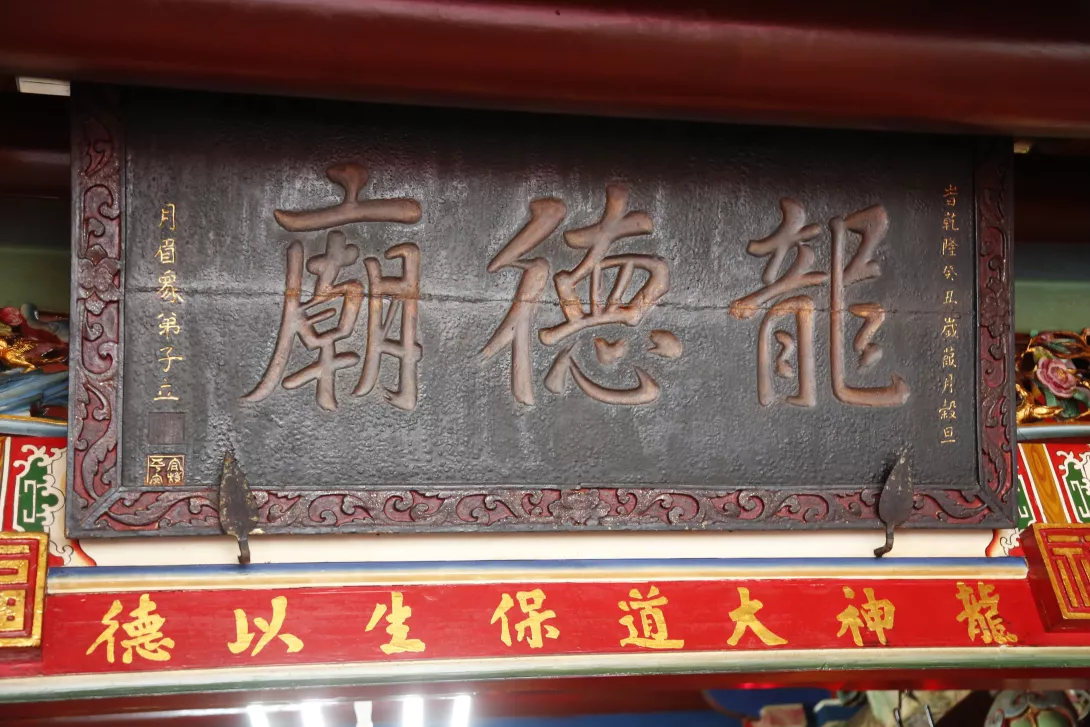 旹乾隆癸丑歲葭月穀旦
龍德廟
月眉眾弟子立
龍神大道保生以德